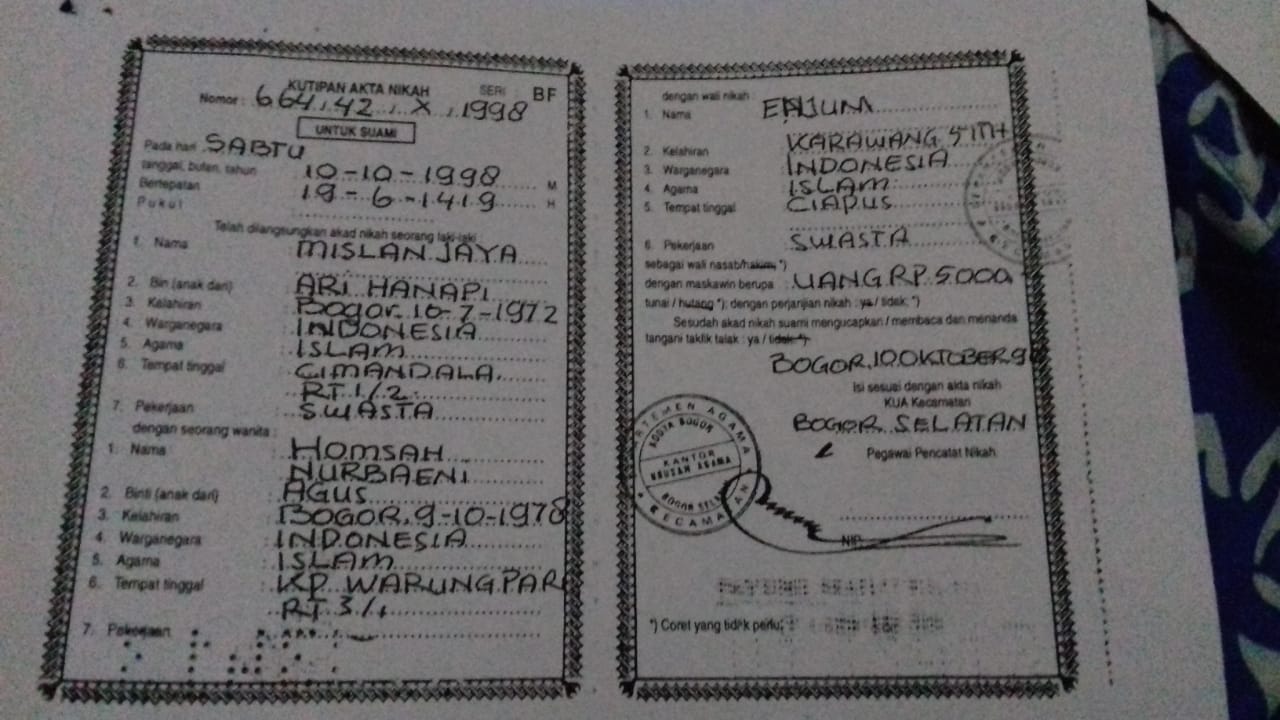 KUTIPAN AKTA NIKAH SERI BF
Nomor : 664,42,X,1998
UNTUK SUAMI
Pada hari SABTU
tanggal, bulan, tahun 10-10-1998 M
Bertepatan 19-6-1419 H
Pukul
Telah dilangsungkan akad nikah seorang laki-laki :
1. Nama : MISLAN JAYA
2. Bin (anak dari) : ARI HANAPI
3. Kelahiran : Bogor 10-7-1972
4. Warganegara : INDONESIA
5. Agama : ISLAM
6. Tempat tinggal : CIMANDALA
RT 1/2
7. Pekerjaan : SWASTA
dengan seorang wanita :
1. Nama : HOMSAH
NURBAENI
2. Binti (anak dari) : AGUS
3. Kelahiran : BOGOR, 9-10-1978
4. Warganegara : INDONESIA
5. Agama : ISLAM
6. Tempat tinggal : KP WARUNG PARI
RT 3/1
7. Pekerjaan
dengan wali nikah :
1. Nama
2. Kelahiran KARAWANG 51TH
3. Warganegara INDONESIA
4. Agama ISLAM
5. Tempat tinggal CIAPUS
6. Pekerjaan SWASTA
sebagai wali nasab/hakim *)
dengan maskawin berupa : UANG RP 5000
tunai / hutang *); dengan perjanjian nikah : ya / tidak; *)
Sesudah akad nikah suami mengucapkan / membaca dan menanda
tangani taklik talak : ya / tidak *)
BOGOR, 10 OKTOBER 9
Isi sesuai dengan akta nikah
KUA Kecamatan
BOGOR SELATAN
Pegawai Pencatat Nikah
KANTOR
URUSAN AGAMA
KECAMATAN
NIP.
*) Coret yang tidak perlu